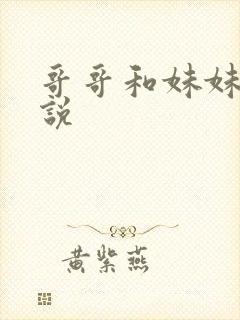 哥哥和妹妹
說
黄紫燕